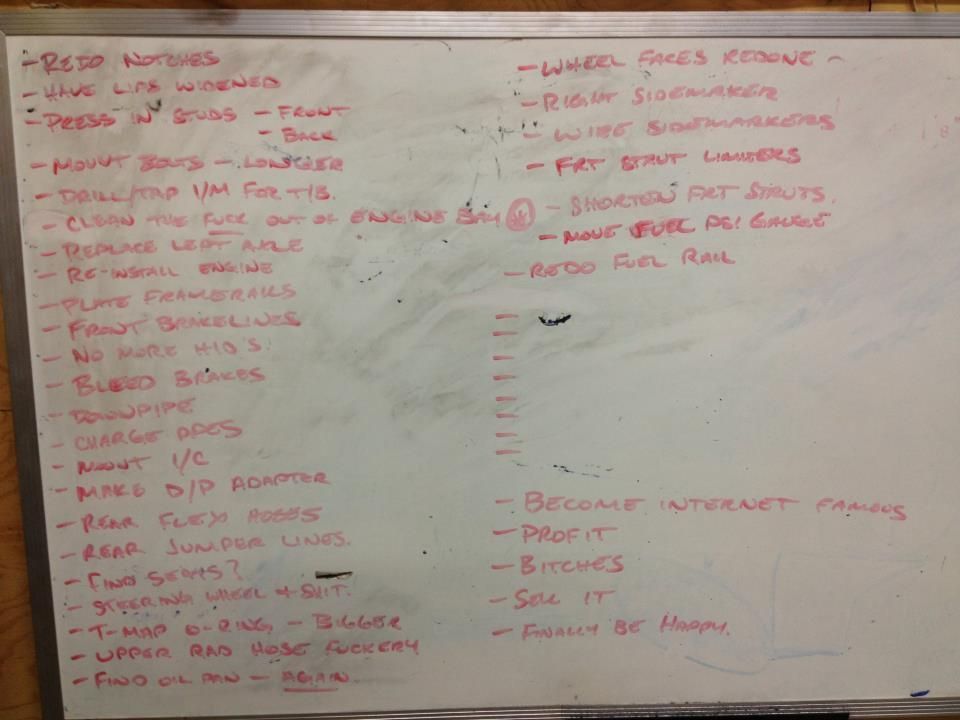 - REDO NOTCHES
- HAVE LIPS WIDENED
- PRESS IN STUDS - FRONT
- BACK
- MOUNT BOLTS - LONGER
- DRILL/TAP I/M FOR T/B.
- CLEAN THE FUCK OUT OF ENGINE BAY
- REPLACE LEFT AXLE
- RE-INSTALL ENGINE
- PLATE FRAMERAILS
- FRONT BRAKELINES
- NO MORE HID'S!
- BLEED BRAKES
- DOWNPIPE
- CHARGE PIPES
- MOUNT I/C
- MAKE D/P ADAPTER
- REAR FLEX HOSES
- REAR JUMPER LINES.
- FIND SEATS?
- STEERING WHEEL + SHIT.
- T-MAP O-RING - BIGGER
- UPPER RAD HOSE FUCKERY
- FIND OIL PAN - AGAIN.
- WHEEL FACES REDONE ~
- RIGHT SIDEMAKER
- WIRE SIDEMARKERS
- FRT STRUT LIMITERS
- SHORTEN FRT STRUTS.
- MOVE FUEL PSI GAUGE
- REDO FUEL RAIL
-
-
-
-
-
-
-
-
- BECOME INTERNET FAMOUS
- PROFIT
- BITCHES
- SELL IT
- FINALLY BE HAPPY.